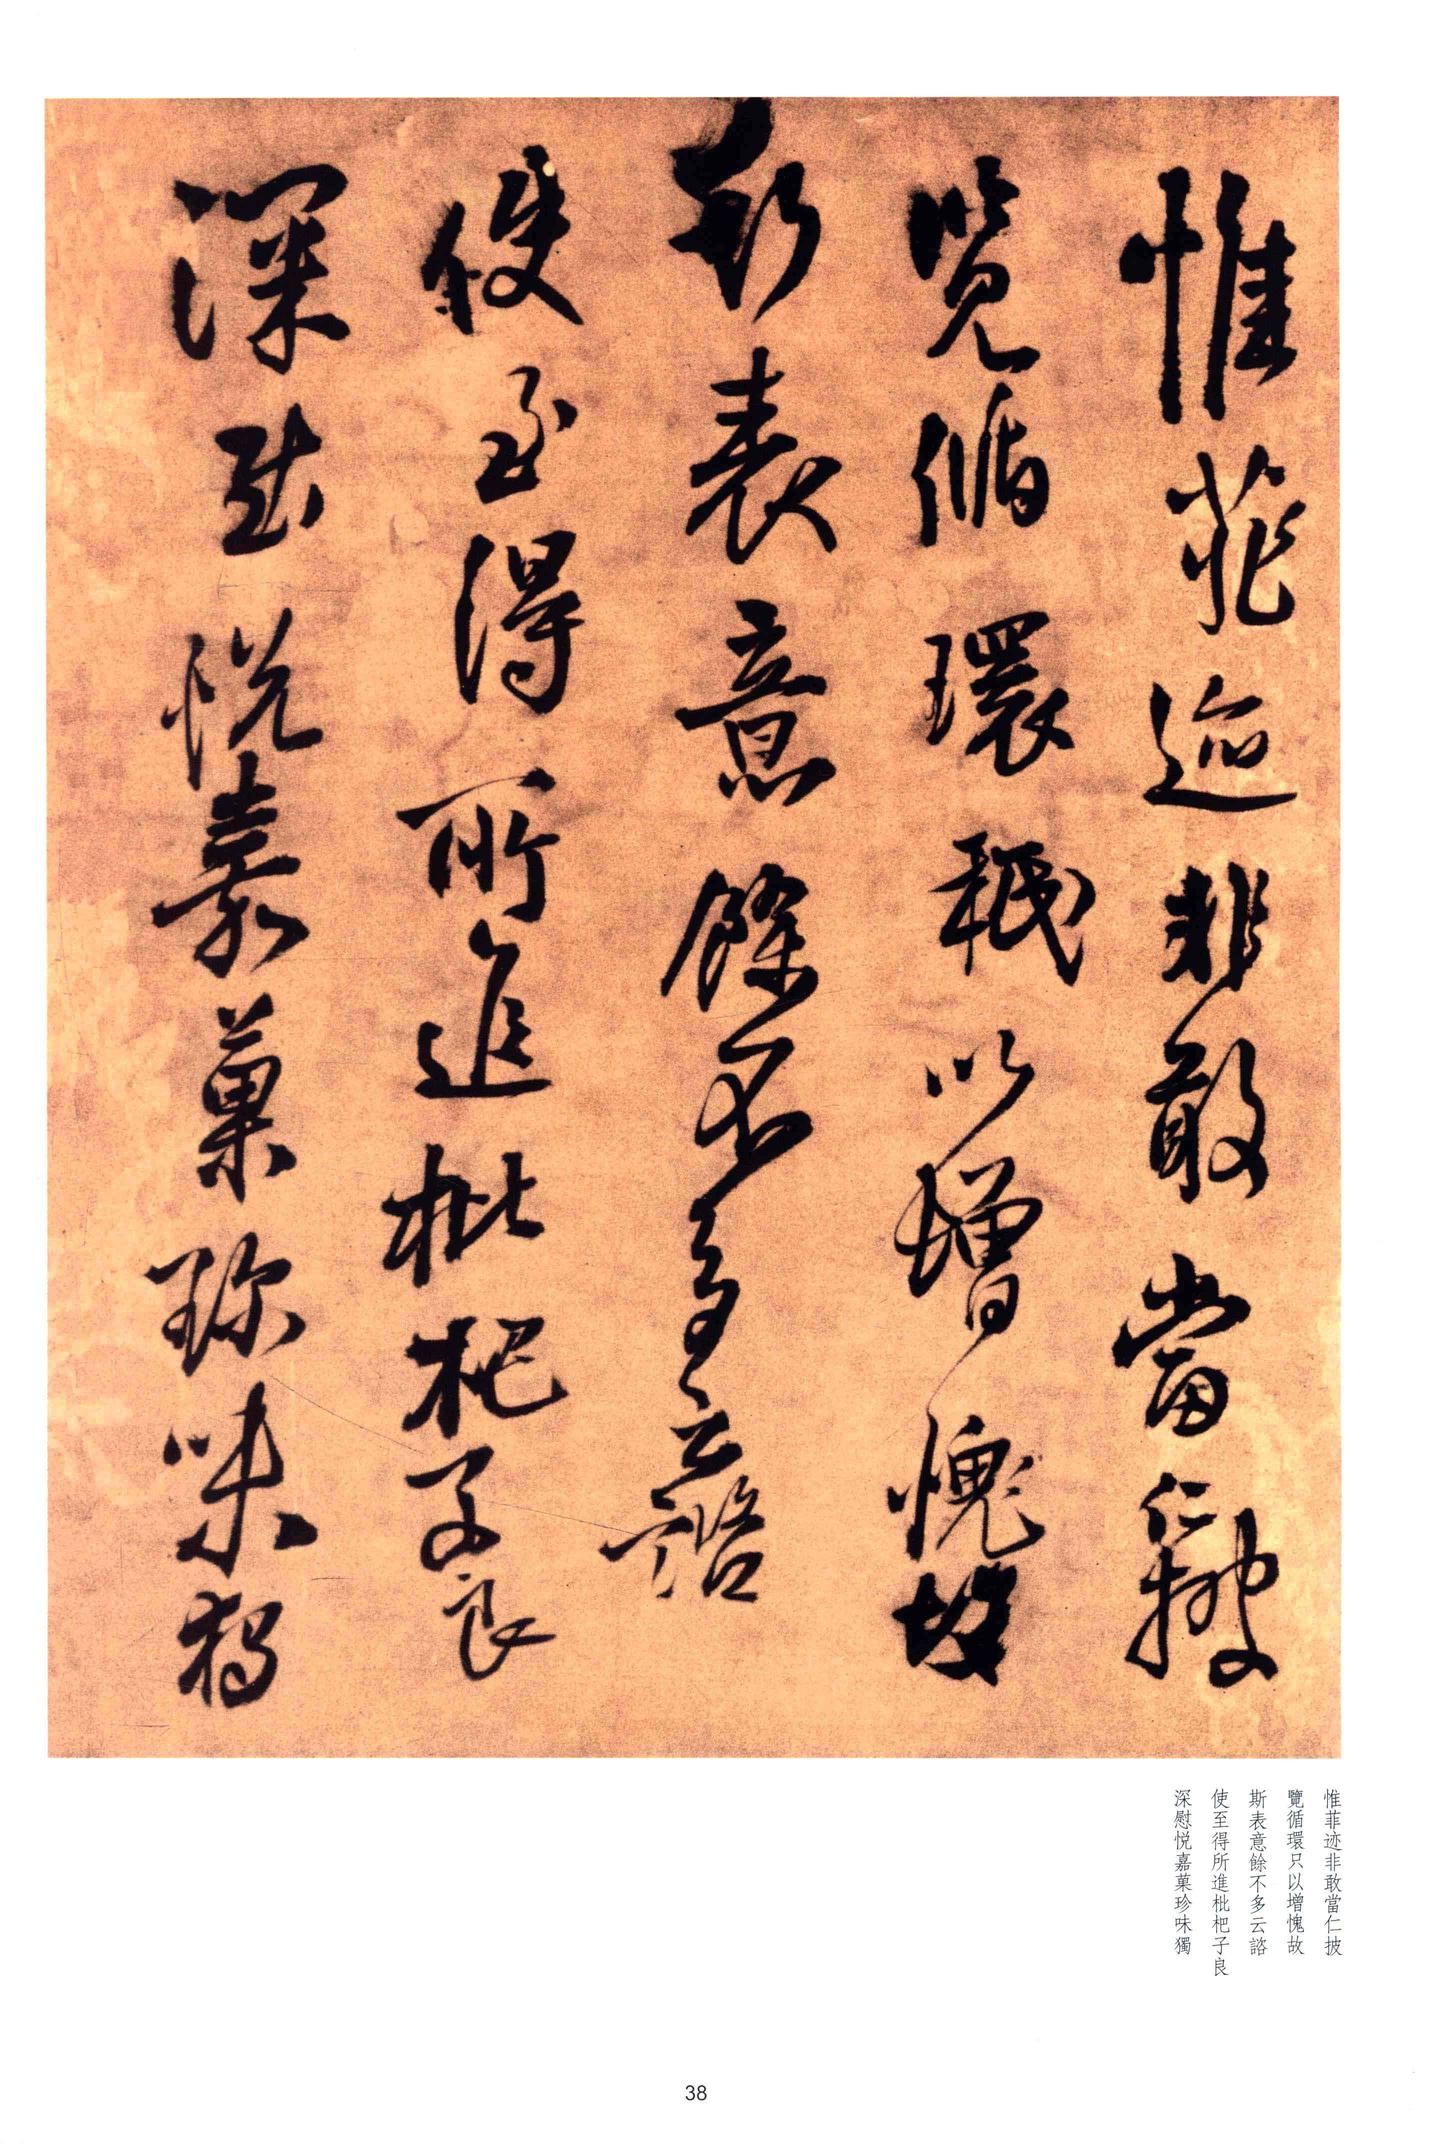 惟菲迹非敢當仁披
覽循環秖以增愧故
斯表意餘不多云諮
使至得所進枇杷子良
深慰悅嘉菓珍味獨
惟菲迹非敢當仁披
覽循環只以增愧故
斯表意餘不多云諮
使至得所進枇杷子良
深慰悦嘉菓珍味獨
38